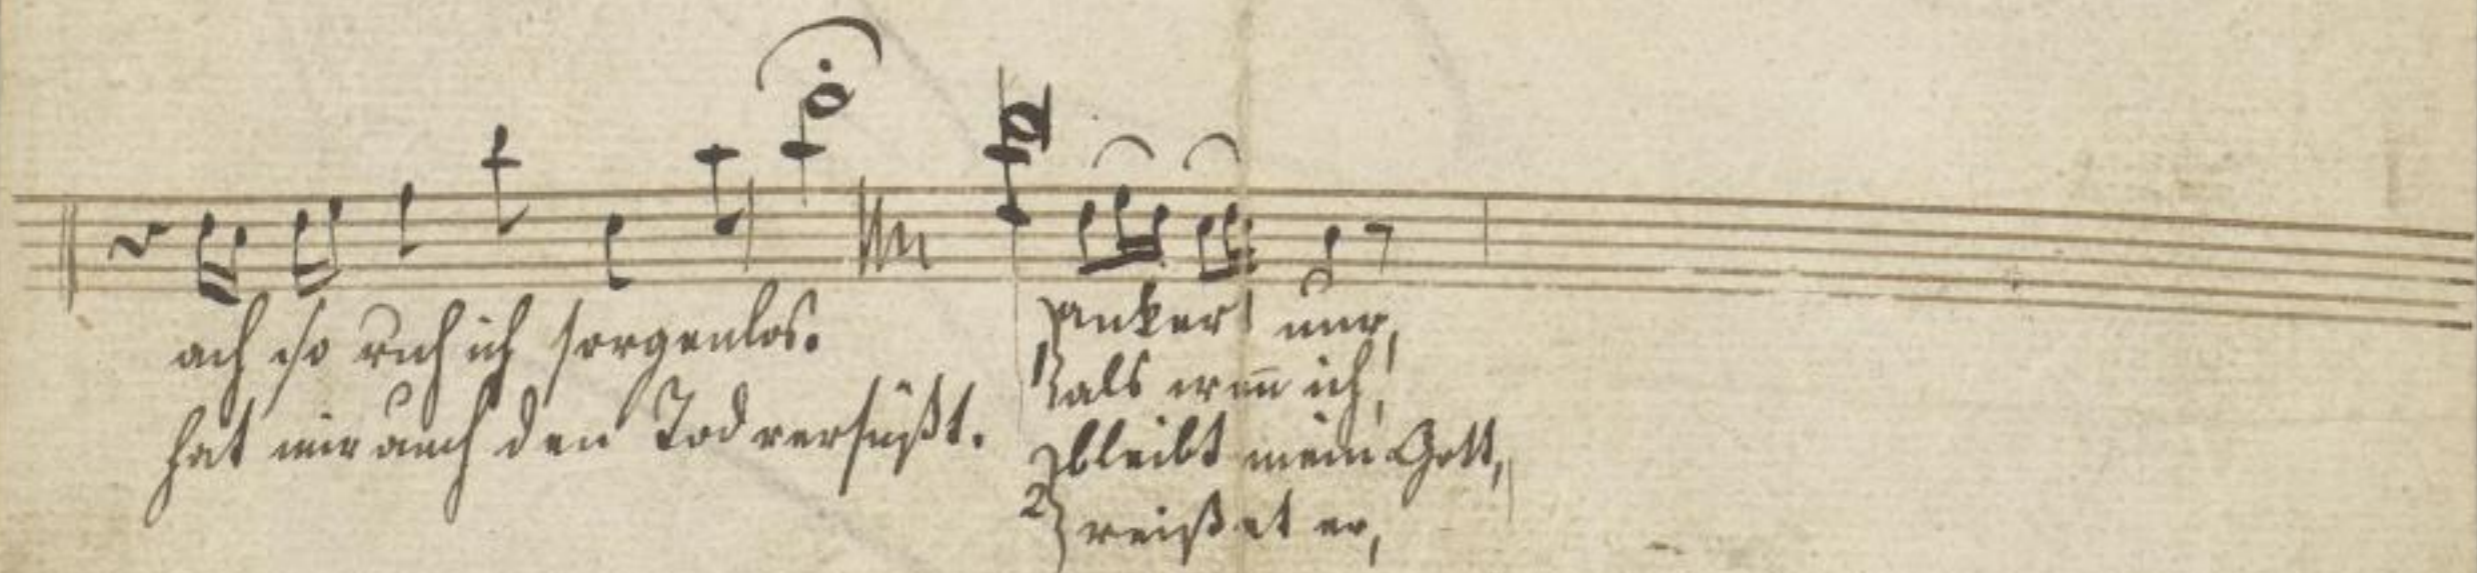 ach so ruh ich sorgenlos.
hat mir auch den Tod versüßt.
anker nur,
1 als wenn ich,
bleibt mein Gott,
2 reißet er,